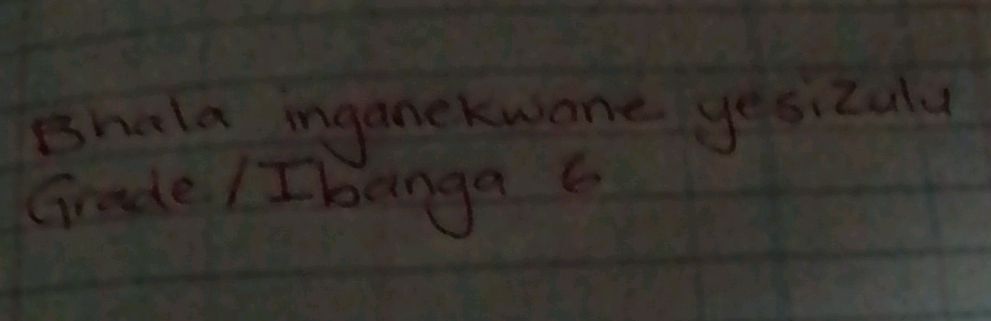 Bhala inganekwane yesiZulu
Grade/Ibanga 6